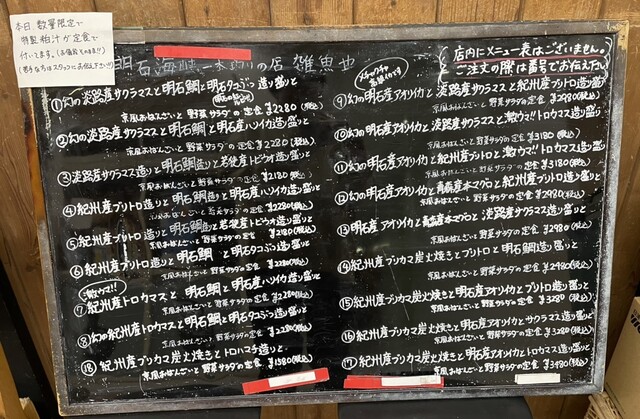 本日 数量限定で
特製粕汁が定食で
付いてます。
明石海峡一本釣りの店 雑魚や
店内にメニュー表はございません。
ご注文の際は番号でお伝え下さい
①幻の淡路産サクラマスと明石鯛と明石タコぶつ造り盛りと
京風おばんざいと野菜サラダの定食 ¥2280(税込)
②幻の淡路産サクラマスと明石鯛と明石産ハリイカ造り盛りと
京風おばんざいと野菜サラダの定食 ¥2280(税込)
③淡路産サクラマス造りと明石鯛造りと若狭産トビウオ造り盛りと
京風おばんざいと野菜サラダの定食 ¥2180(税込)
④紀州産ブリトロ造りと明石鯛造りと明石産ハリイカ造り盛りと
京風おばんざいと野菜サラダの定食 ¥2180(税込)
⑤紀州産ブリトロ造りと明石鯛造りと若狭産トビウオ造り盛りと
京風おばんざいと野菜サラダの定食 ¥2180(税込)
⑥紀州産ブリトロ造りと明石鯛と明石タコぶつ造り盛りと
京風おばんざいと野菜サラダの定食 ¥2280(税込)
激ウマ!!
⑦紀州産トロカマスと明石鯛と明石産ハリイカ造り盛りと
京風おばんざいと野菜サラダの定食 ¥2280(税込)
⑧幻の紀州産トロカマスと明石鯛と明石タコぶつ造り盛りと
京風おばんざいと野菜サラダの定食 ¥2280(税込)
⑱紀州産ブリカマ炭火焼きとトロハマチ造りと
京風おばんざいと野菜サラダの定食 ¥1380(税込)
⑨幻の明石産アオリイカと淡路産サクラマスと紀州産ブリトロ造り盛りと
京風おばんざいと野菜サラダの定食 ¥2980(税込)
⑩幻の明石産アオリイカと淡路産サクラマスと激ウマ!!トロカマス造り盛りと
京風おばんざいと野菜サラダの定食 ¥3180(税込)
⑪幻の明石産アオリイカと紀州産ブリトロと激ウマ!!トロカマス造り盛りと
京風おばんざいと野菜サラダの定食 ¥3180(税込)
⑫幻の明石産アオリイカと青森産本マグロと紀州産ブリトロ造り盛りと
京風おばんざいと野菜サラダの定食 ¥2980(税込)
⑬明石産アオリイカと青森産本マグロと淡路産サクラマス造り盛りと
京風おばんざいと野菜サラダの定食 ¥2980(税込)
⑭紀州産ブリカマ炭火焼きとブリトロと明石鯛造り盛りと
京風おばんざいと野菜サラダの定食 ¥2480(税込)
⑮紀州産ブリカマ炭火焼きと明石産アオリイカとブリトロ造り盛りと
京風おばんざいと野菜サラダの定食 ¥3280(税込)
⑯紀州産ブリカマ炭火焼きと明石産アオリイカとサクラマス造り盛りと
京風おばんざいと野菜サラダの定食 ¥3280(税込)
⑰紀州産ブリカマ炭火焼きと明石産アオリイカとトロカマス造り盛りと
京風おばんざいと野菜サラダの定食 ¥3480(税込)